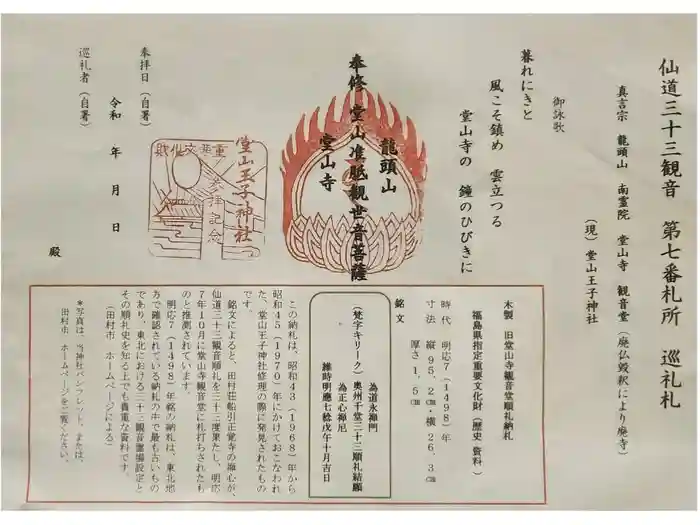 仙道三十三観音 第七番札所 巡礼札
真言宗 龍頭山 南霊院 堂山寺 観音堂(廃仏毀釈により廃寺)
(現)堂山王子神社
御詠歌
暮れにきと
風こそ鎮め 雲立つる
堂山寺の 鐘のひびきに
龍頭山
奉修 堂山准胝観世音菩薩
堂山寺
堂山王子神社
参拝記念
重要文化財
奉拝日(自署)
令和 年 月 日
巡礼者(自署)
殿
木製 旧堂山寺観音堂順礼納札
福島県指定重要文化財(歴史資料)
時代 明応7(1498)年
寸法 縦95.2㎝・横26.3㎝
厚さ1.5㎝
銘文
為道永禅門
(梵字キリーク)奥州千堂三十三順礼結願
為正心禅尼
維時明應七稔戊午十月吉日
この納札は、昭和43(1968)年から
昭和45(1970)年にかけておこなわれ
た、堂山王子神社修理の際に発見されたもの
です。
銘文によると、田村荘船引正覚寺の禅心が、
仙道三十三観音順礼を三十三度果たし、明応
7年10月に堂山寺観音堂に札打ちされたも
のと推測されています。
明応7(1498)年銘の納札は、東北地
方で確認されている納札の中で最も古いもの
であり、東北における三十三観音霊場設定と
その順礼史を知る上でも貴重な資料です。
(田村市 ホームページによる)
*写真は、当神社パンフレット、または、
田村市 ホームページをご覧ください。